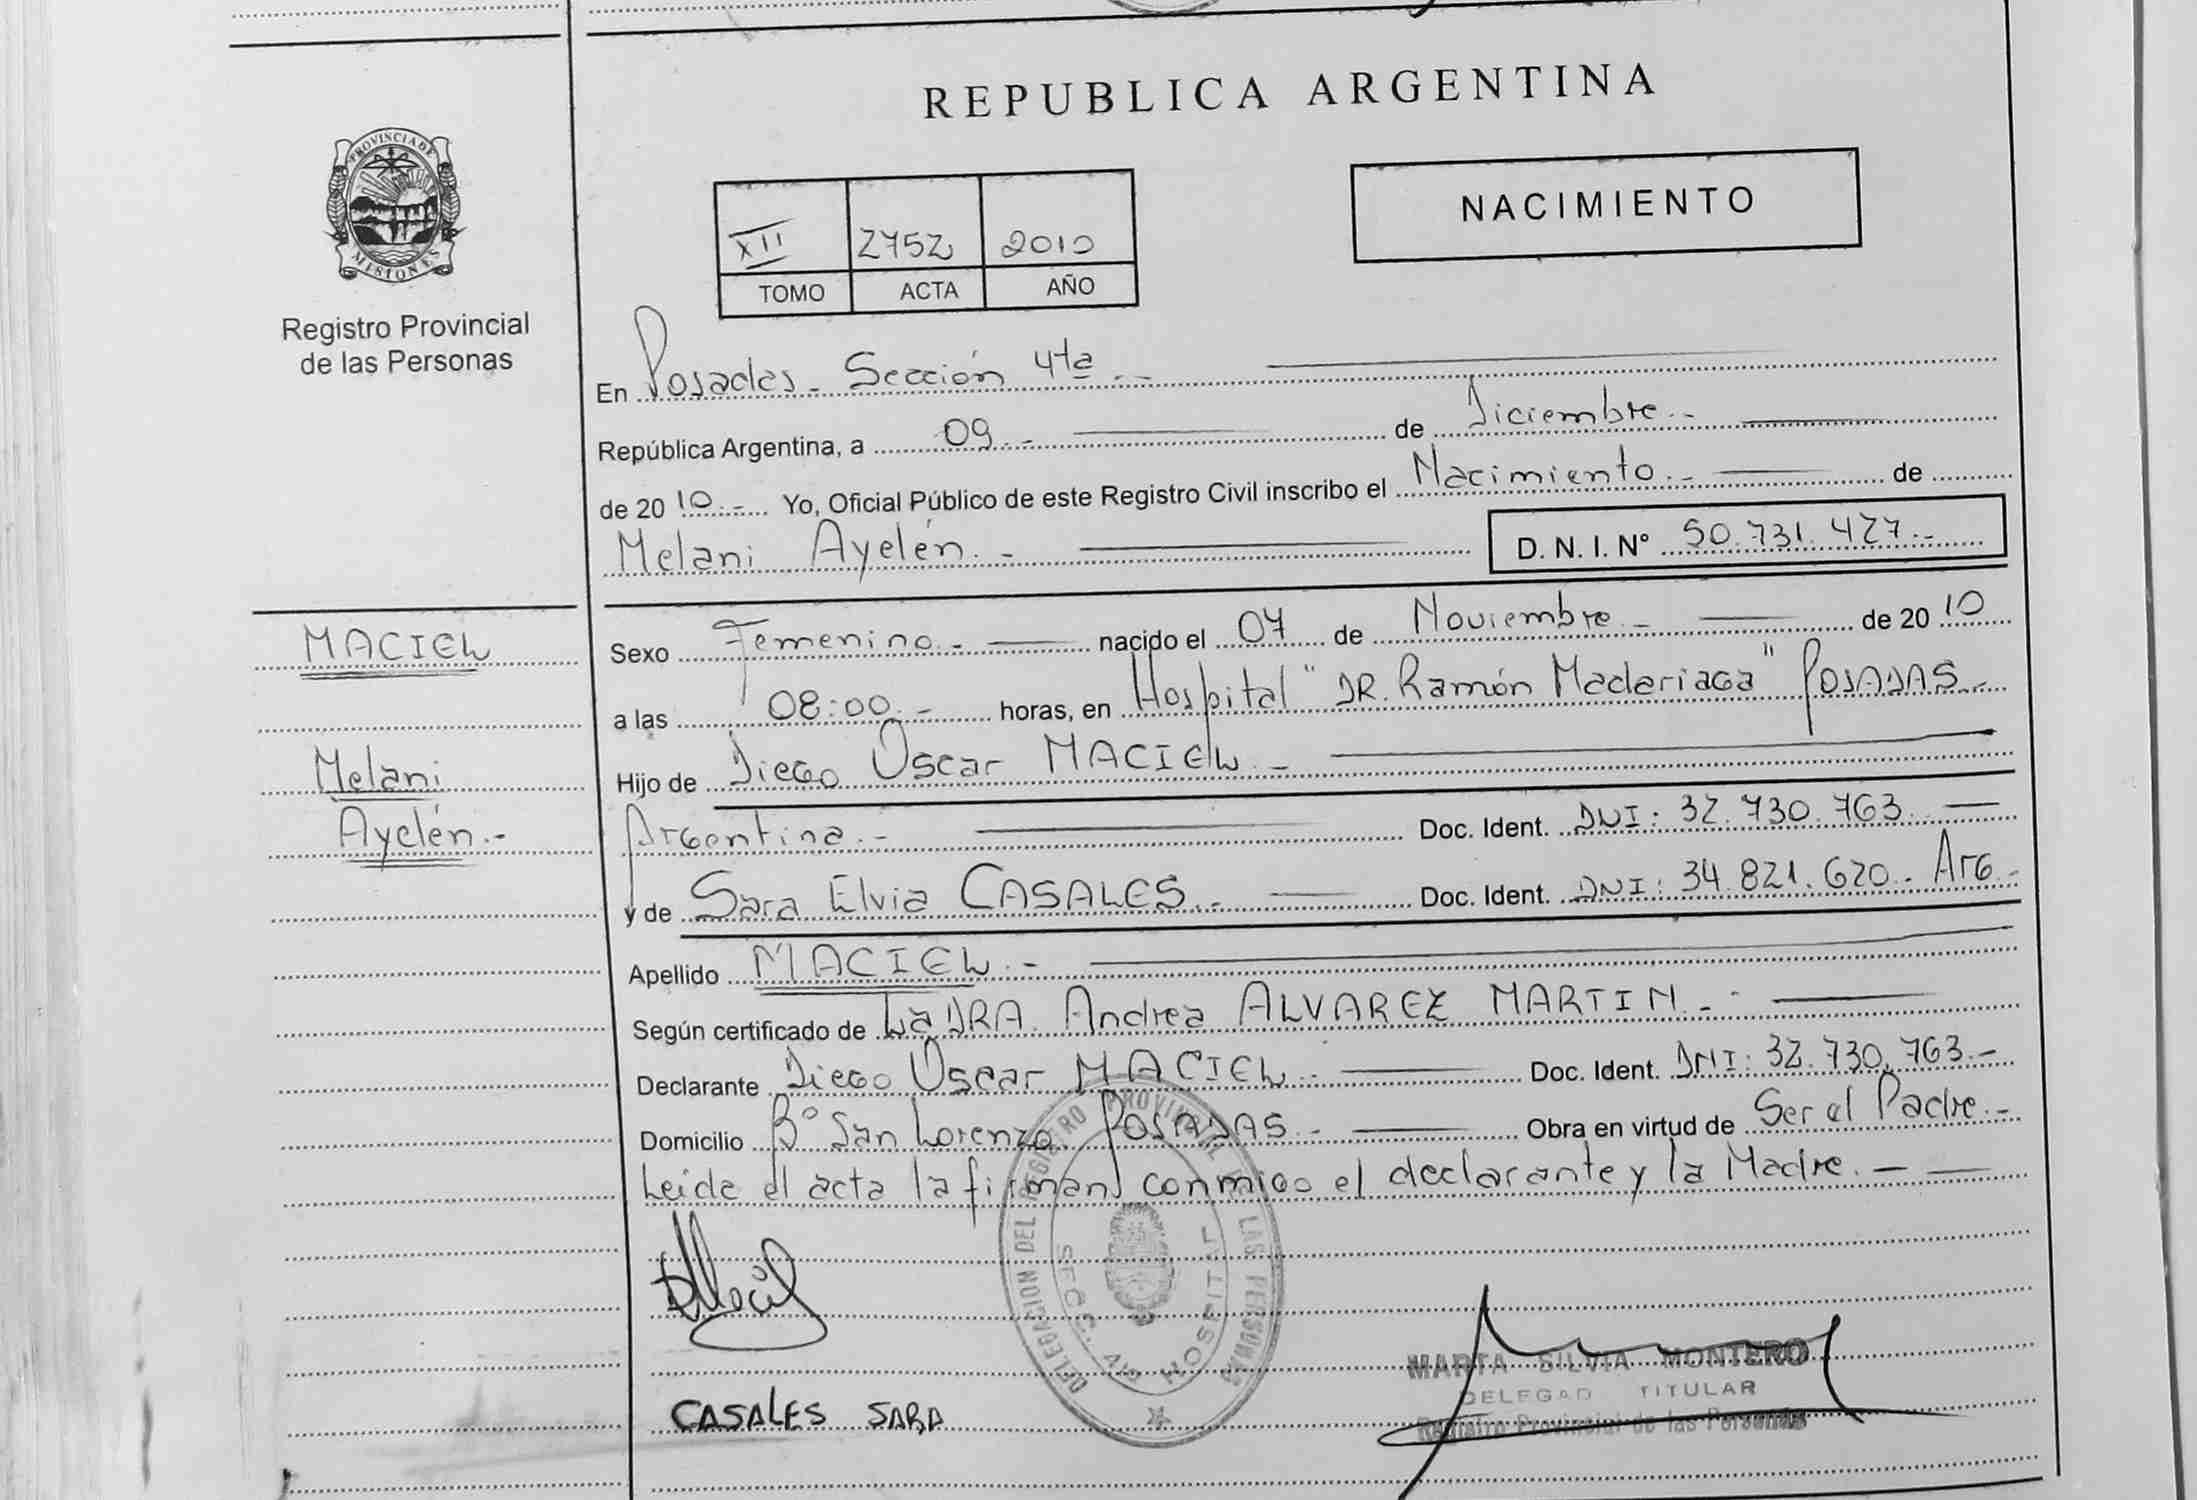 REPUBLICA ARGENTINA
PROVINCIA DE MISIONES
Registro Provincial
de las Personas
NACIMIENTO
XII 2752 2010
TOMO ACTA AÑO
En Posadas - Sección 4ta.-
República Argentina, a 09.- de Diciembre.-
de 2010.- Yo, Oficial Público de este Registro Civil inscribo el Nacimiento.- de
Melani Ayelén.- D. N. I. Nº 50.731.427.-
MACIEL
Melani
Ayelén.-
Sexo Femenino.- nacido el 07 de Noviembre.- de 2010
a las 08:00.- horas, en Hospital "DR. Ramón Madariaga" POSADAS.-
Hijo de Diego Oscar MACIEL.-
Argentina.- Doc. Ident. DNI: 32.730.763.-
y de Sara Elvia CASALES.- Doc. Ident. DNI: 34.821.620.- Arg.-
Apellido MACIEL.-
Según certificado de La DRA. Andrea ALVAREZ MARTIN.-
Declarante Diego Oscar MACIEL.- Doc. Ident. DNI: 32.730.763.-
Domicilio Bº San Lorenzo. POSADAS.- Obra en virtud de Ser el Padre.-
Leida el acta la firman conmigo el declarante y la Madre.-
DELEGACION DEL REGISTRO PROVINCIAL DE LAS PERSONAS
SECC. HOSPITAL
MARTA SILVIA MONTERO
DELEGAD TITULAR
Registro Provincial de las Personas
CASALES SARA